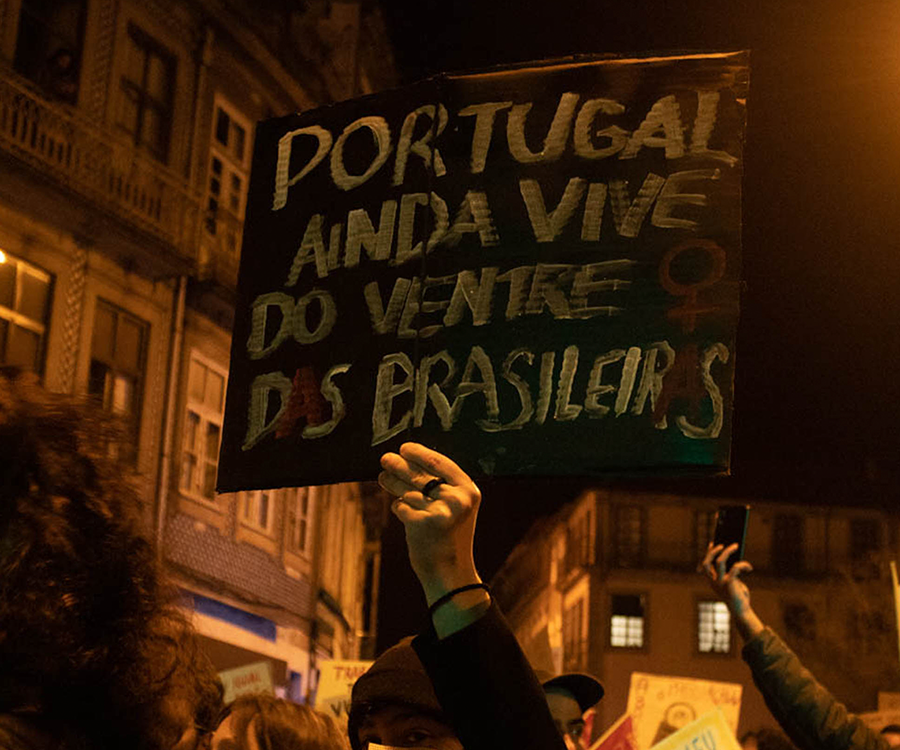 PORTUGAL
AINDA VIVE
DO VENTRE ♀
DAS BRASILEIRAS